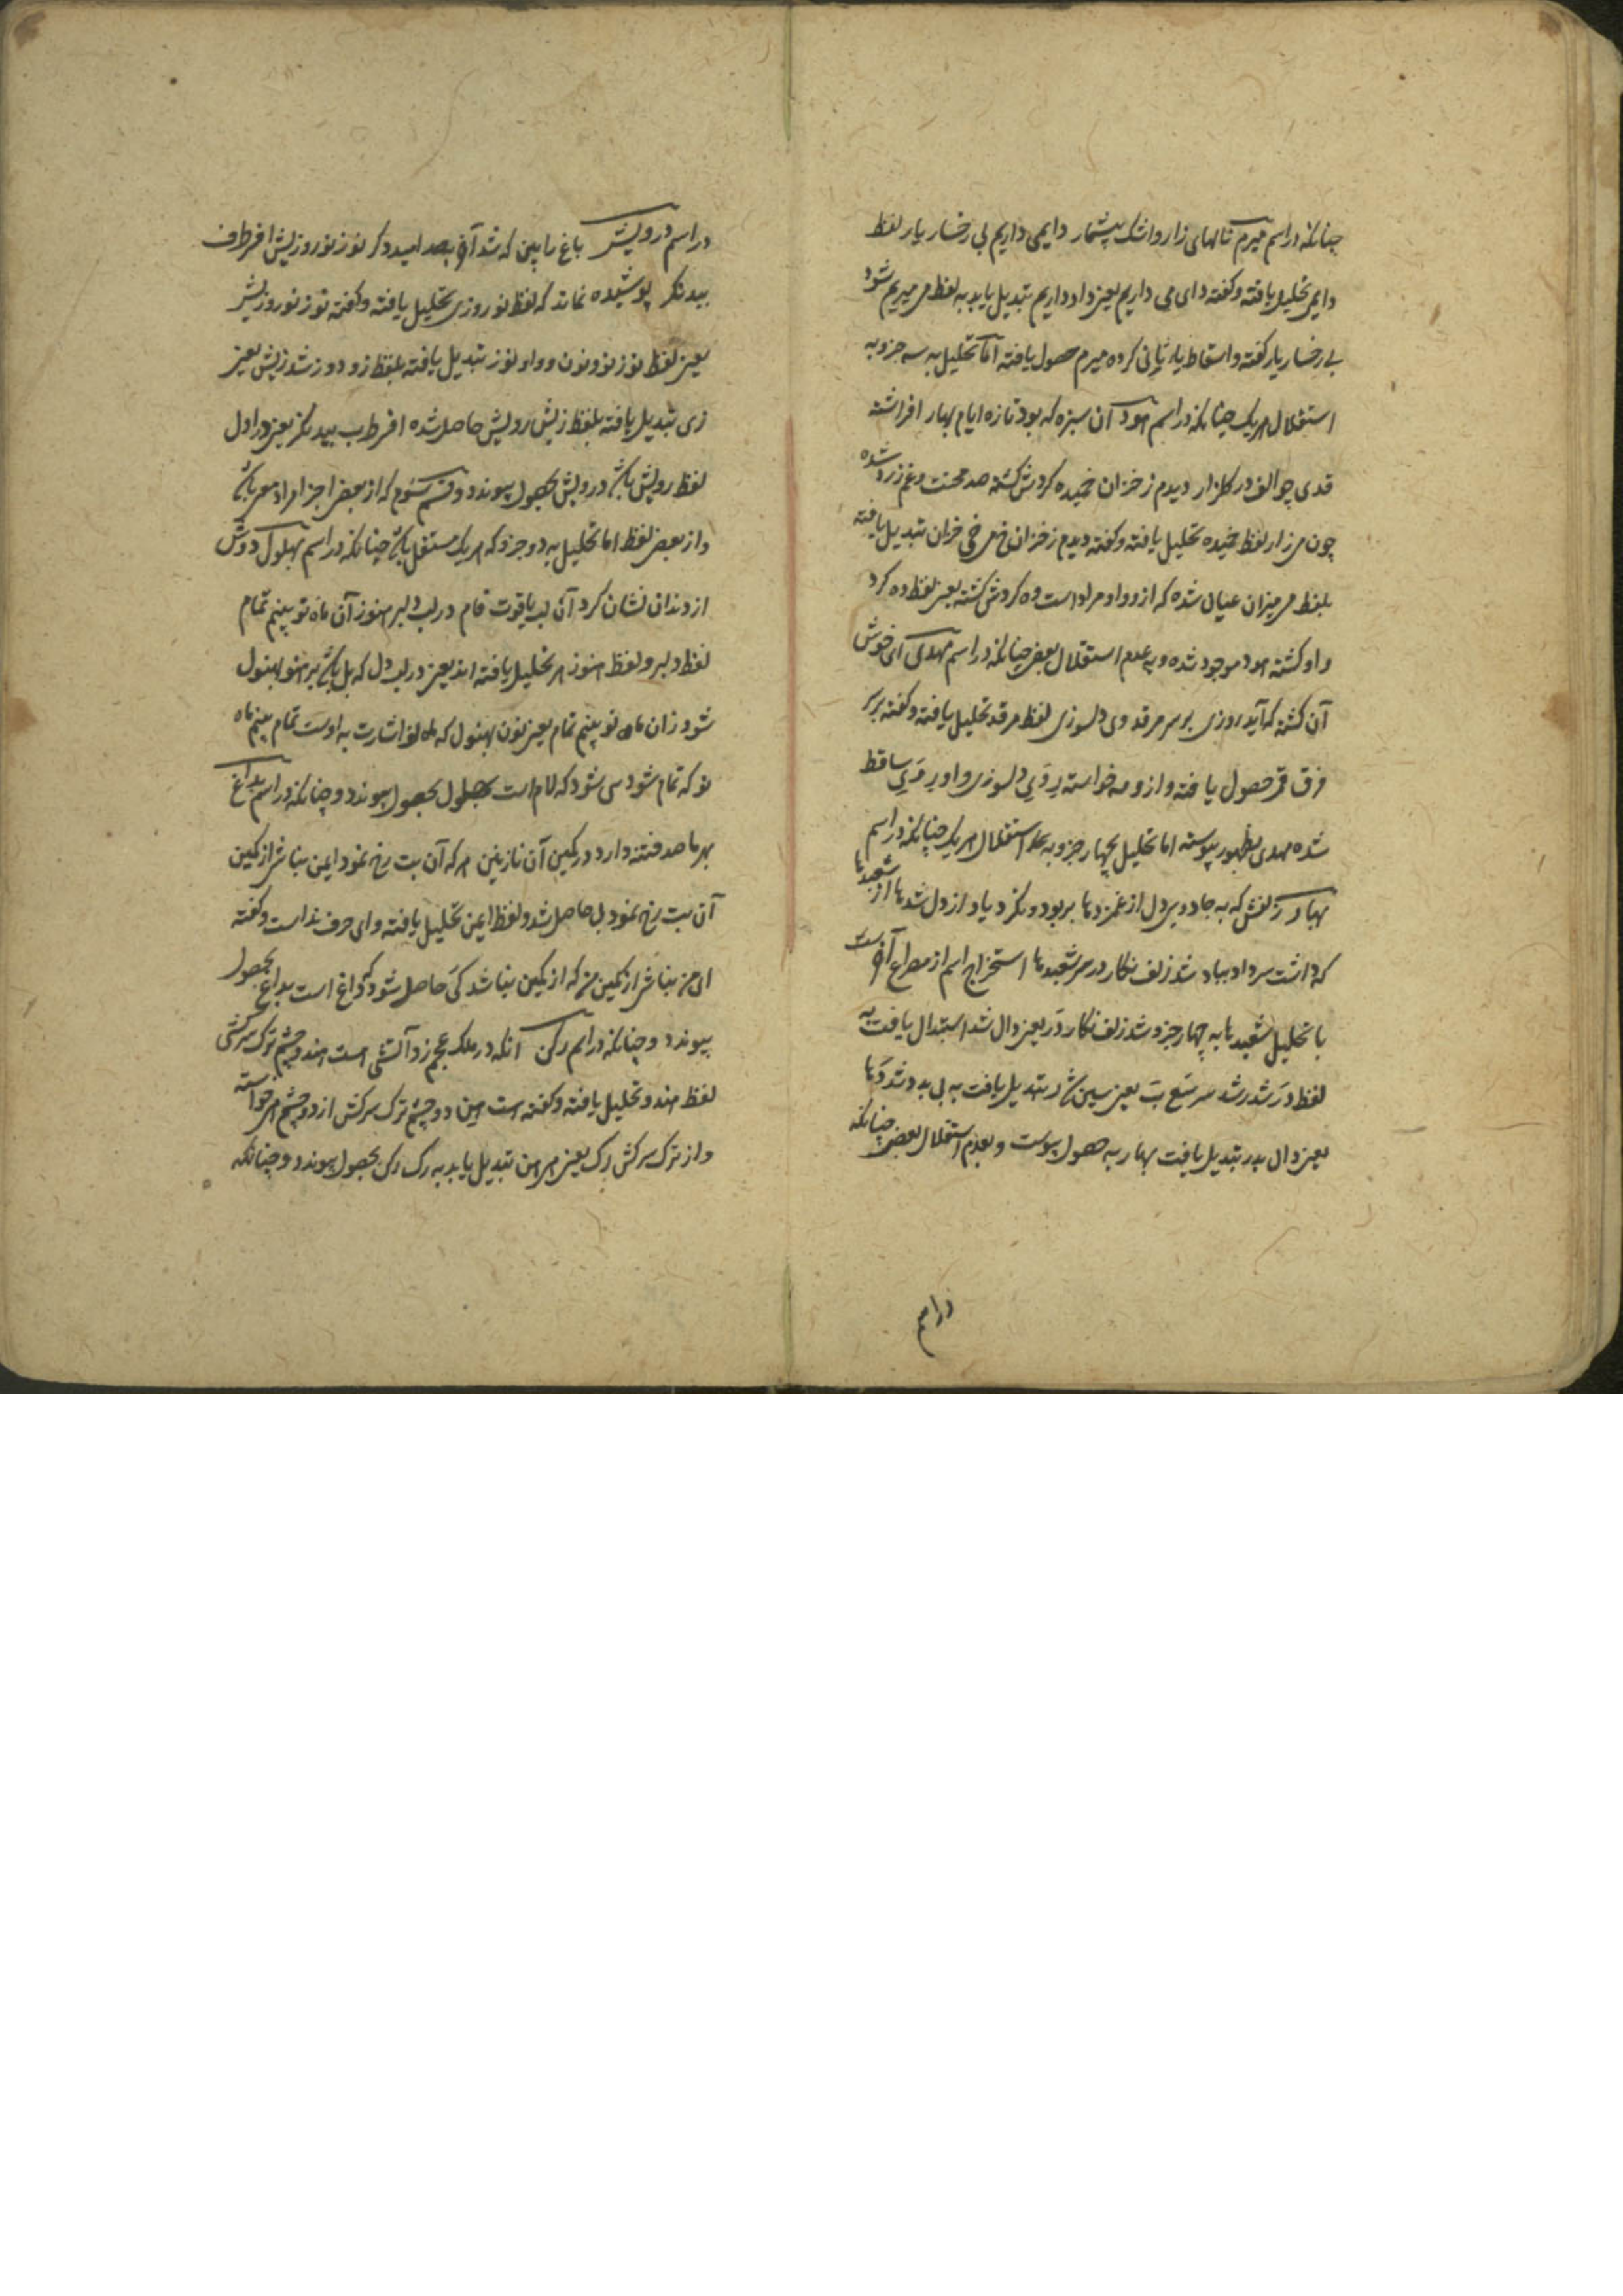 چنانکه در اسم میرم نالهای زار و اشک بیشمار دایمی داریم بی رخسار یار لفظ
دایمی تحلیل یافته و گفته دای می داریم یعنی داد داریم تبدیل یابد به لفظ می میریم شود
بی رخسار یار گفته و اسقاط یاء ثانی کرده میرم حصول یافته اما تحلیل به سه جزو به
استقلال هر یک چنانکه در اسم هود آن سبزه که بود تازه ایام بهار افراشته
قدی چو الف در گلزار دیدم ز خزان خمیده کردش گشته صد محنت و غم زرد شده
چون می زار لفظ خمیده تحلیل یافته و گفته دیدم ز خزان خ می خزان تبدیل یافته
بلفظ می میزان عیان شده که از و واو مراد است وه کردش گشته یعنی لفظ ده کرد
واو گشته هود موجود شده و به عدم استقلال بعض چنانکه در اسم مهدی ای خوش
آن کشته که آید روزی بر سر مرقد وی دلسوزی لفظ مرقد تحلیل یافته و گفته بر سر
فرق قد حصول یافته و از و مه خواسته بر دی دلسوزی واو بر دی ساقط
شده مهدی بظهور پیوسته اما تحلیل بچهار جزو به استقلال هر یک چنانکه در اسم
بهار زلفش که به جادویی دل از غمزدها بربود و نکرد یاد از دل شدها از شعبدها
که داشت سر داد بباد شد زلف نگار در سر شعبدها استخراج اسم از مصراع آخر است
با تحلیل شعبدها به چهار جزو شد زلف نگار در یعنی دال شد استبدال یافت به
لفظ در شد رشد سر شع بت یعنی سین در تبدیل یافت به بی بد و شد دها
یعنی دال بدر تبدیل یافت بهار به حصول پیوست و بعدم استقلال بعض چنانکه
در اسم
در اسم درویش باغ را بین که شد آخر بصد امید دگر نوز نوروزیش افرطرف
بید نگر پوشیده نماند که لفظ نوروزی تحلیل یافته و گفته نوز نو روزیش
یعنی لفظ نوز نو و نون و واو نوز تبدیل یافته بلفظ زو دوز شد زیش یعنی
زی تبدیل یافته بلفظ زیش رویش حاصل شده افرطرب بید نگر یعنی در اول
لفظ رویش باشد درویش بحصول پیوندد و قسم سوم که از بعض اجزا مراد معنی باشد
و از بعض لفظ اما تحلیل به دو جزو که هر یک مستقل باشد چنانکه در اسم بهلول دوش
از دندان نشان کرد آن لب یاقوت فام در لب دلبر هنوز آن ماه نو بینم تمام
لفظ دلبر و لفظ هنوز هر تحلیل یافته اند یعنی در لب دل که بل باشد بر هنو بهنول
شود زان ماه نو بینم تمام یعنی نون بهنول که ماه نو اشارت به اوست تمام بینم ماه
نو که تمام شود سی شود که لام است بهلول بحصول پیوندد و چنانکه در اسم بداغ
بهر ما صد فتنه دارد در کمین آن نازنین هر که آن بت رخ نمود ایمن مباش از کمین
آن بت رخ نمود بل حاصل شد و لفظ ایمن تحلیل یافته و ای حرف نداست و گفته
ای من مباش از کمین من که از کمین مباشد کی حاصل شود که داغ است بداغ بحصول
پیوندد و چنانکه در اسم رکن آنکه در ملک عجم زد آتشی هست هندو چشم ترک سرکش
لفظ هندو تحلیل یافته و گفته است هین دو چشم ترک سرکش از دو چشم هی خواسته
و از ترک سرکش رک یعنی هی هن تبدیل یابد به رک رکن بحصول پیوندد و چنانکه